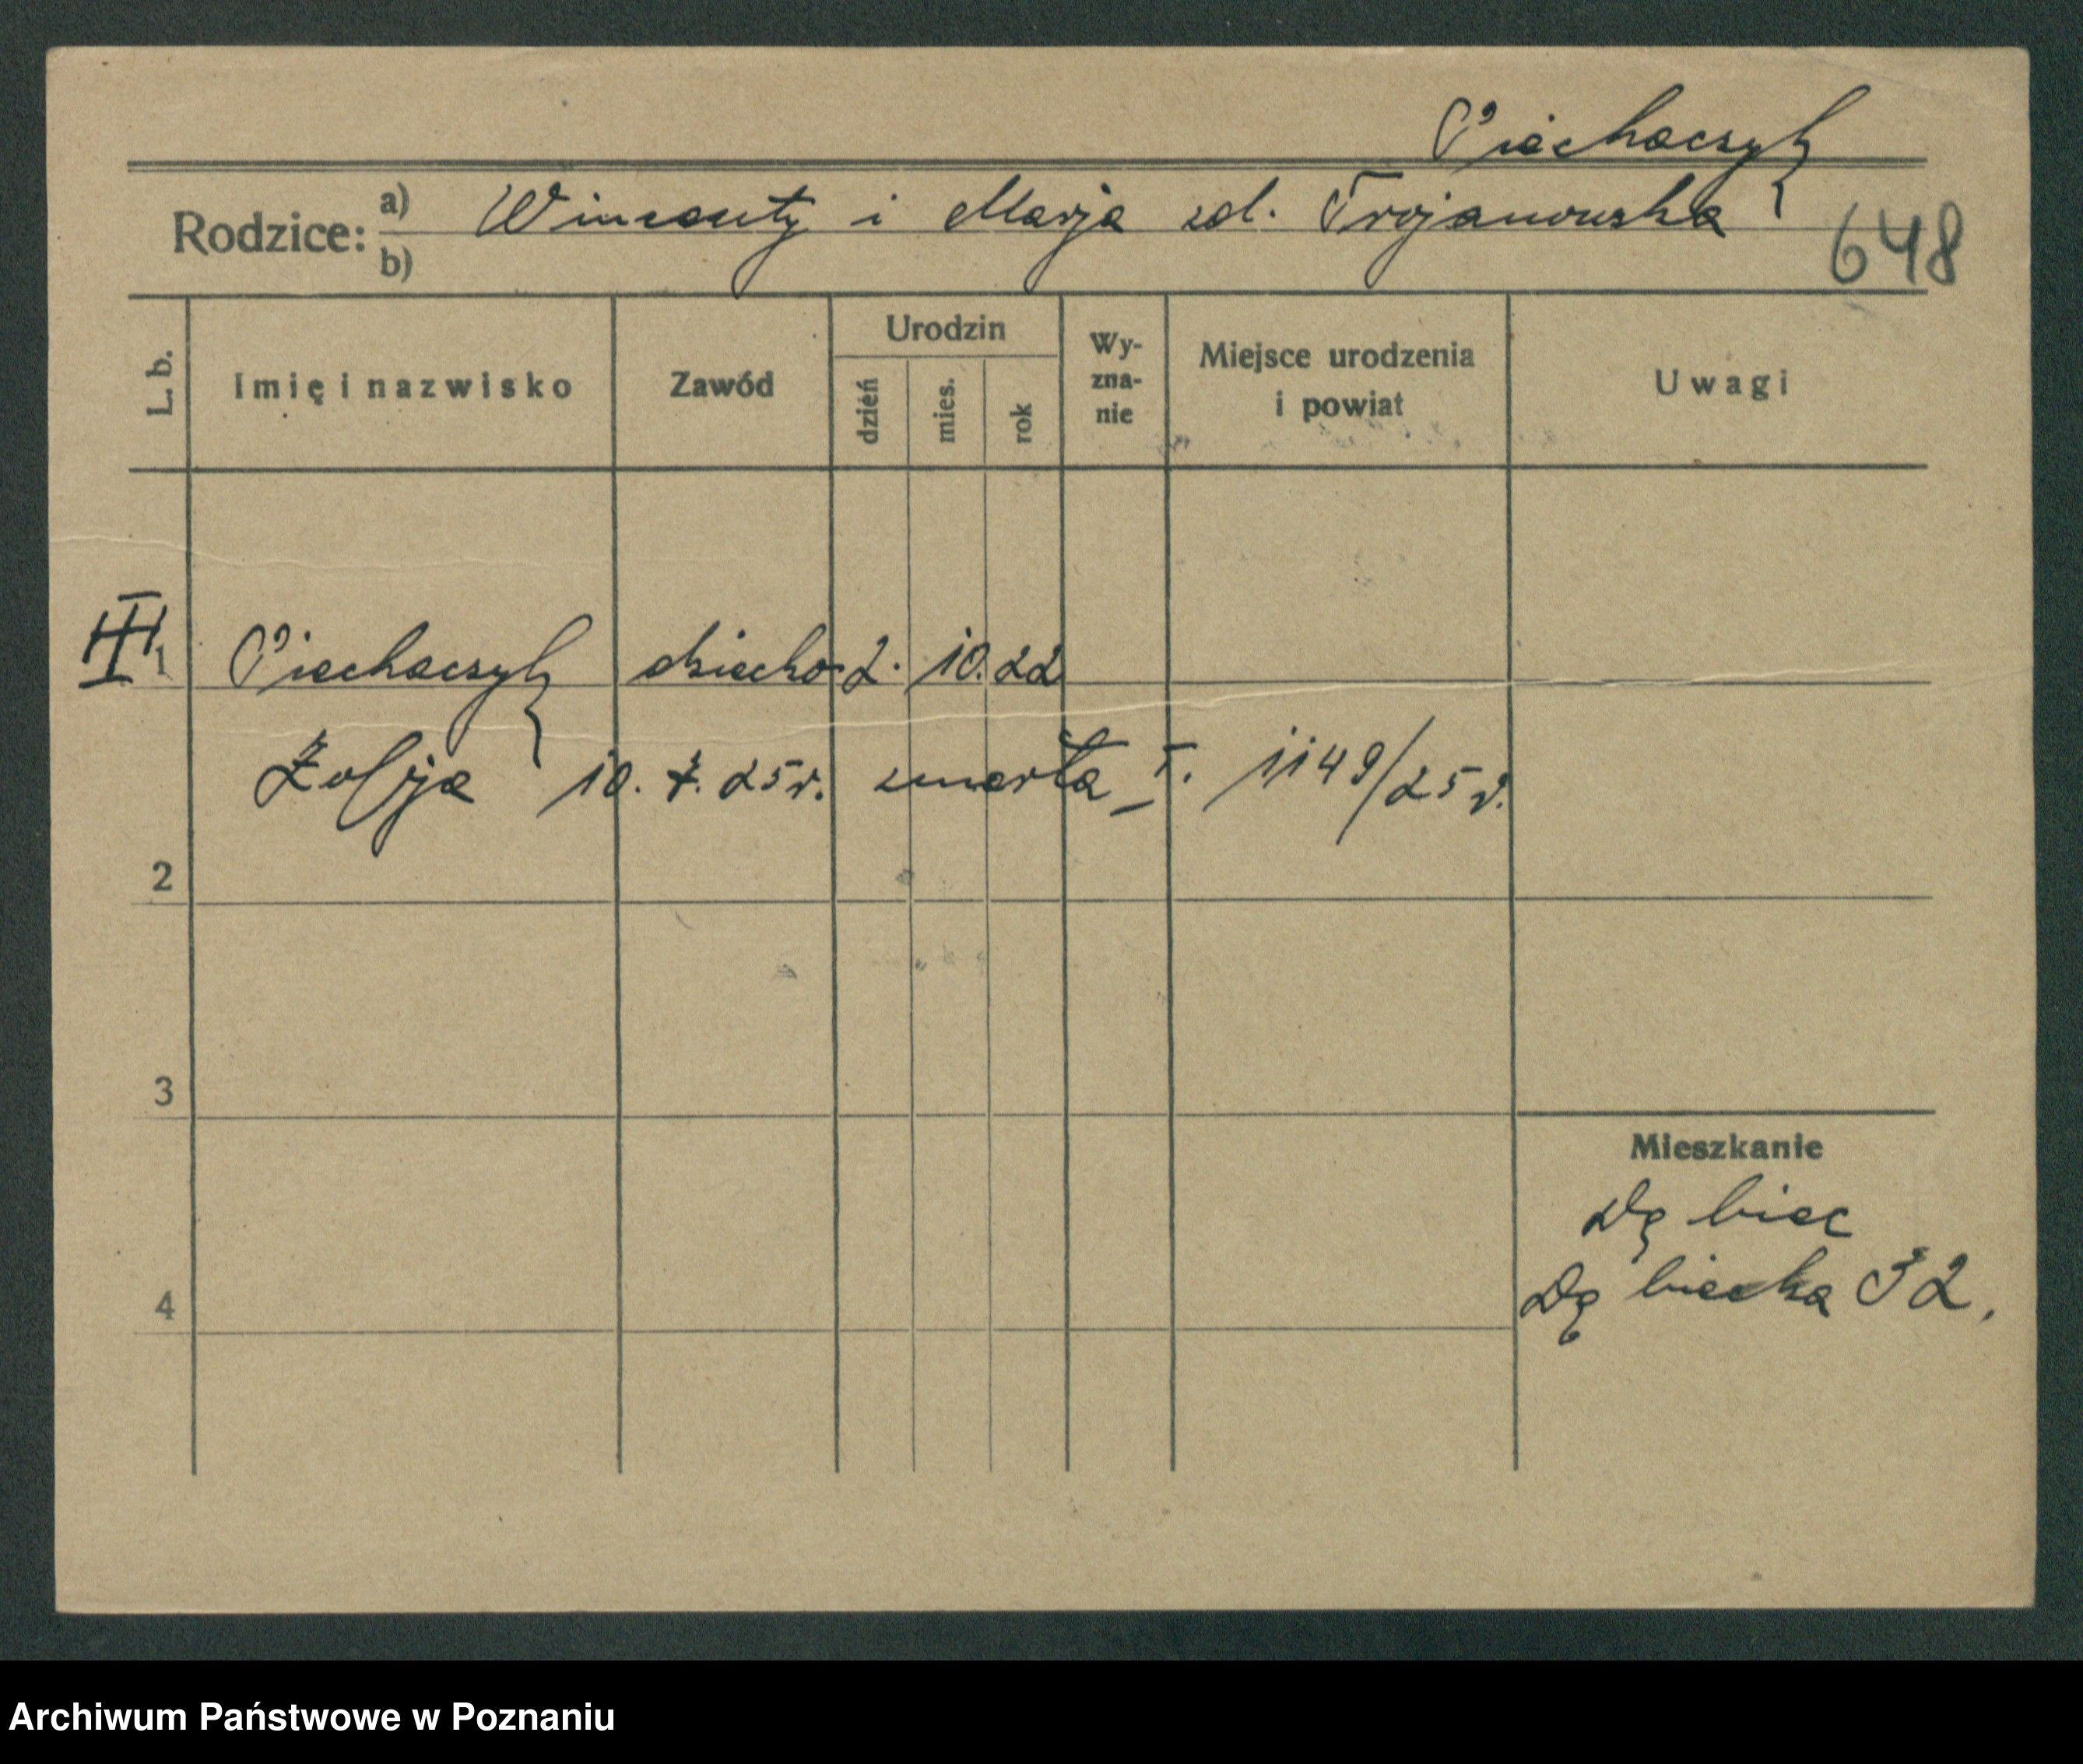 Piechaczyk
Rodzice: a) b) Wincenty i Marja zd. Trojanowska
648
L. b.
Imię i nazwisko
Zawód
Urodzin
dzień
mies.
rok
Wy-
zna-
nie
Miejsce urodzenia
i powiat
Uwagi
III
1 Piechaczyk dziecko 2. 10. 22
Zofja 10. 7. 25 r. zmarła T. 1149/25 r.
2
3
Mieszkanie
Dębiec
Dębiecka 32.
4
Archiwum Państwowe w Poznaniu